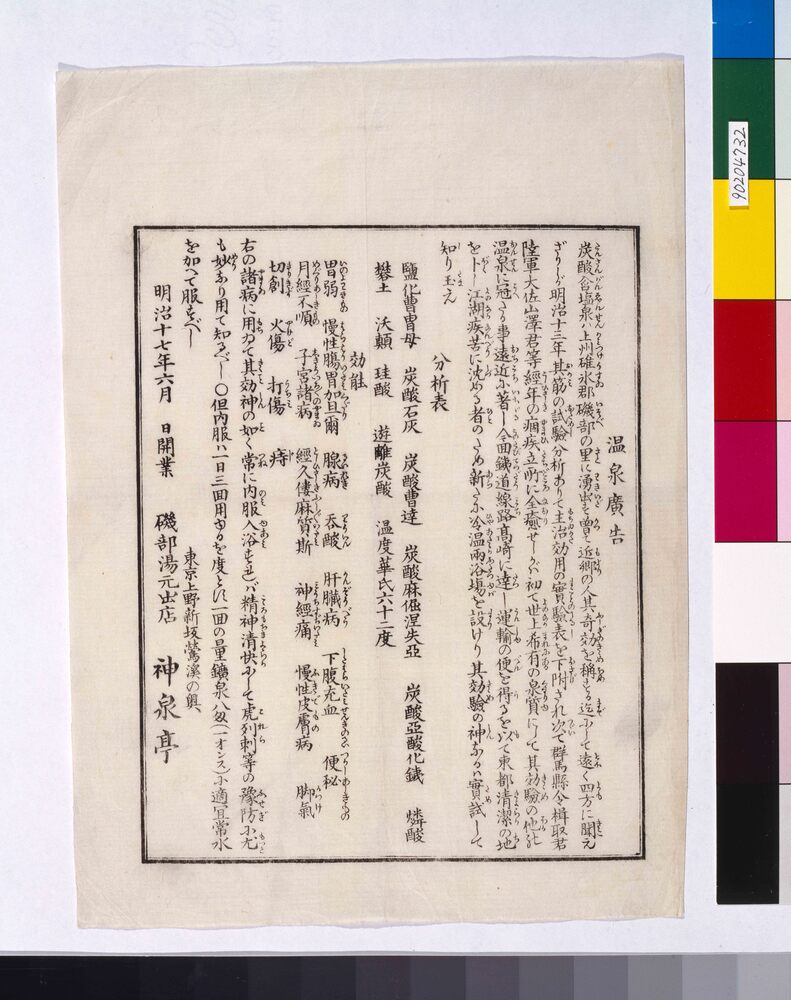 温泉廣告
炭酸含塩泉ハ上州碓氷郡磯部の里に湧出し曽て近郷の人其奇効を稱する迄ふして遠く四方に聞え
ざりしが明治十三年其筋の試驗分析ありて主治効用の實驗表を下附され次で群馬縣令楫取君
陸軍大佐山澤君等經年の痼疾立所に全癒せしかバ初て世上希有の泉質にして其効驗の他の
温泉に冠たる事遠近ふ著し今回鐵道線路髙崎に達し運輸の便を得るを以て東都清潔の地
を卜し江湖疾苦に沈める者のため新たふ冷温兩浴塲を設けり其効驗の神なるハ實試して
知り玉え
分析表
鹽化曹胄母 炭酸石灰 炭酸曹達 炭酸麻倔涅失亞 炭酸亞酸化鐵 燐酸
礬土 沃顛 珪酸 遊離炭酸 温度華氏六十二度
効能
胃弱 慢性腸胃加且爾 腺病 呑酸 肝臓病 下腹充血 便秘
月經不順 子宮諸病 經久僂麻質斯 神經痛 慢性皮膚病 脚氣
切創 火傷 打傷 痔
右の諸病に用ゐて其効神の如く常に内服入浴すれバ精神清快ふして虎列刺等の豫防ふ尤
も妙なり用て知るべし ○但内服ハ一日三回用ゆるを度とし一回の量鑛泉八匁(一オンス)ふ適宜常水
を加へて服すべし
明治十七年六月 日開業
東京上野新坂鶯溪の奥、
磯部湯元出店 神泉亭
90204732